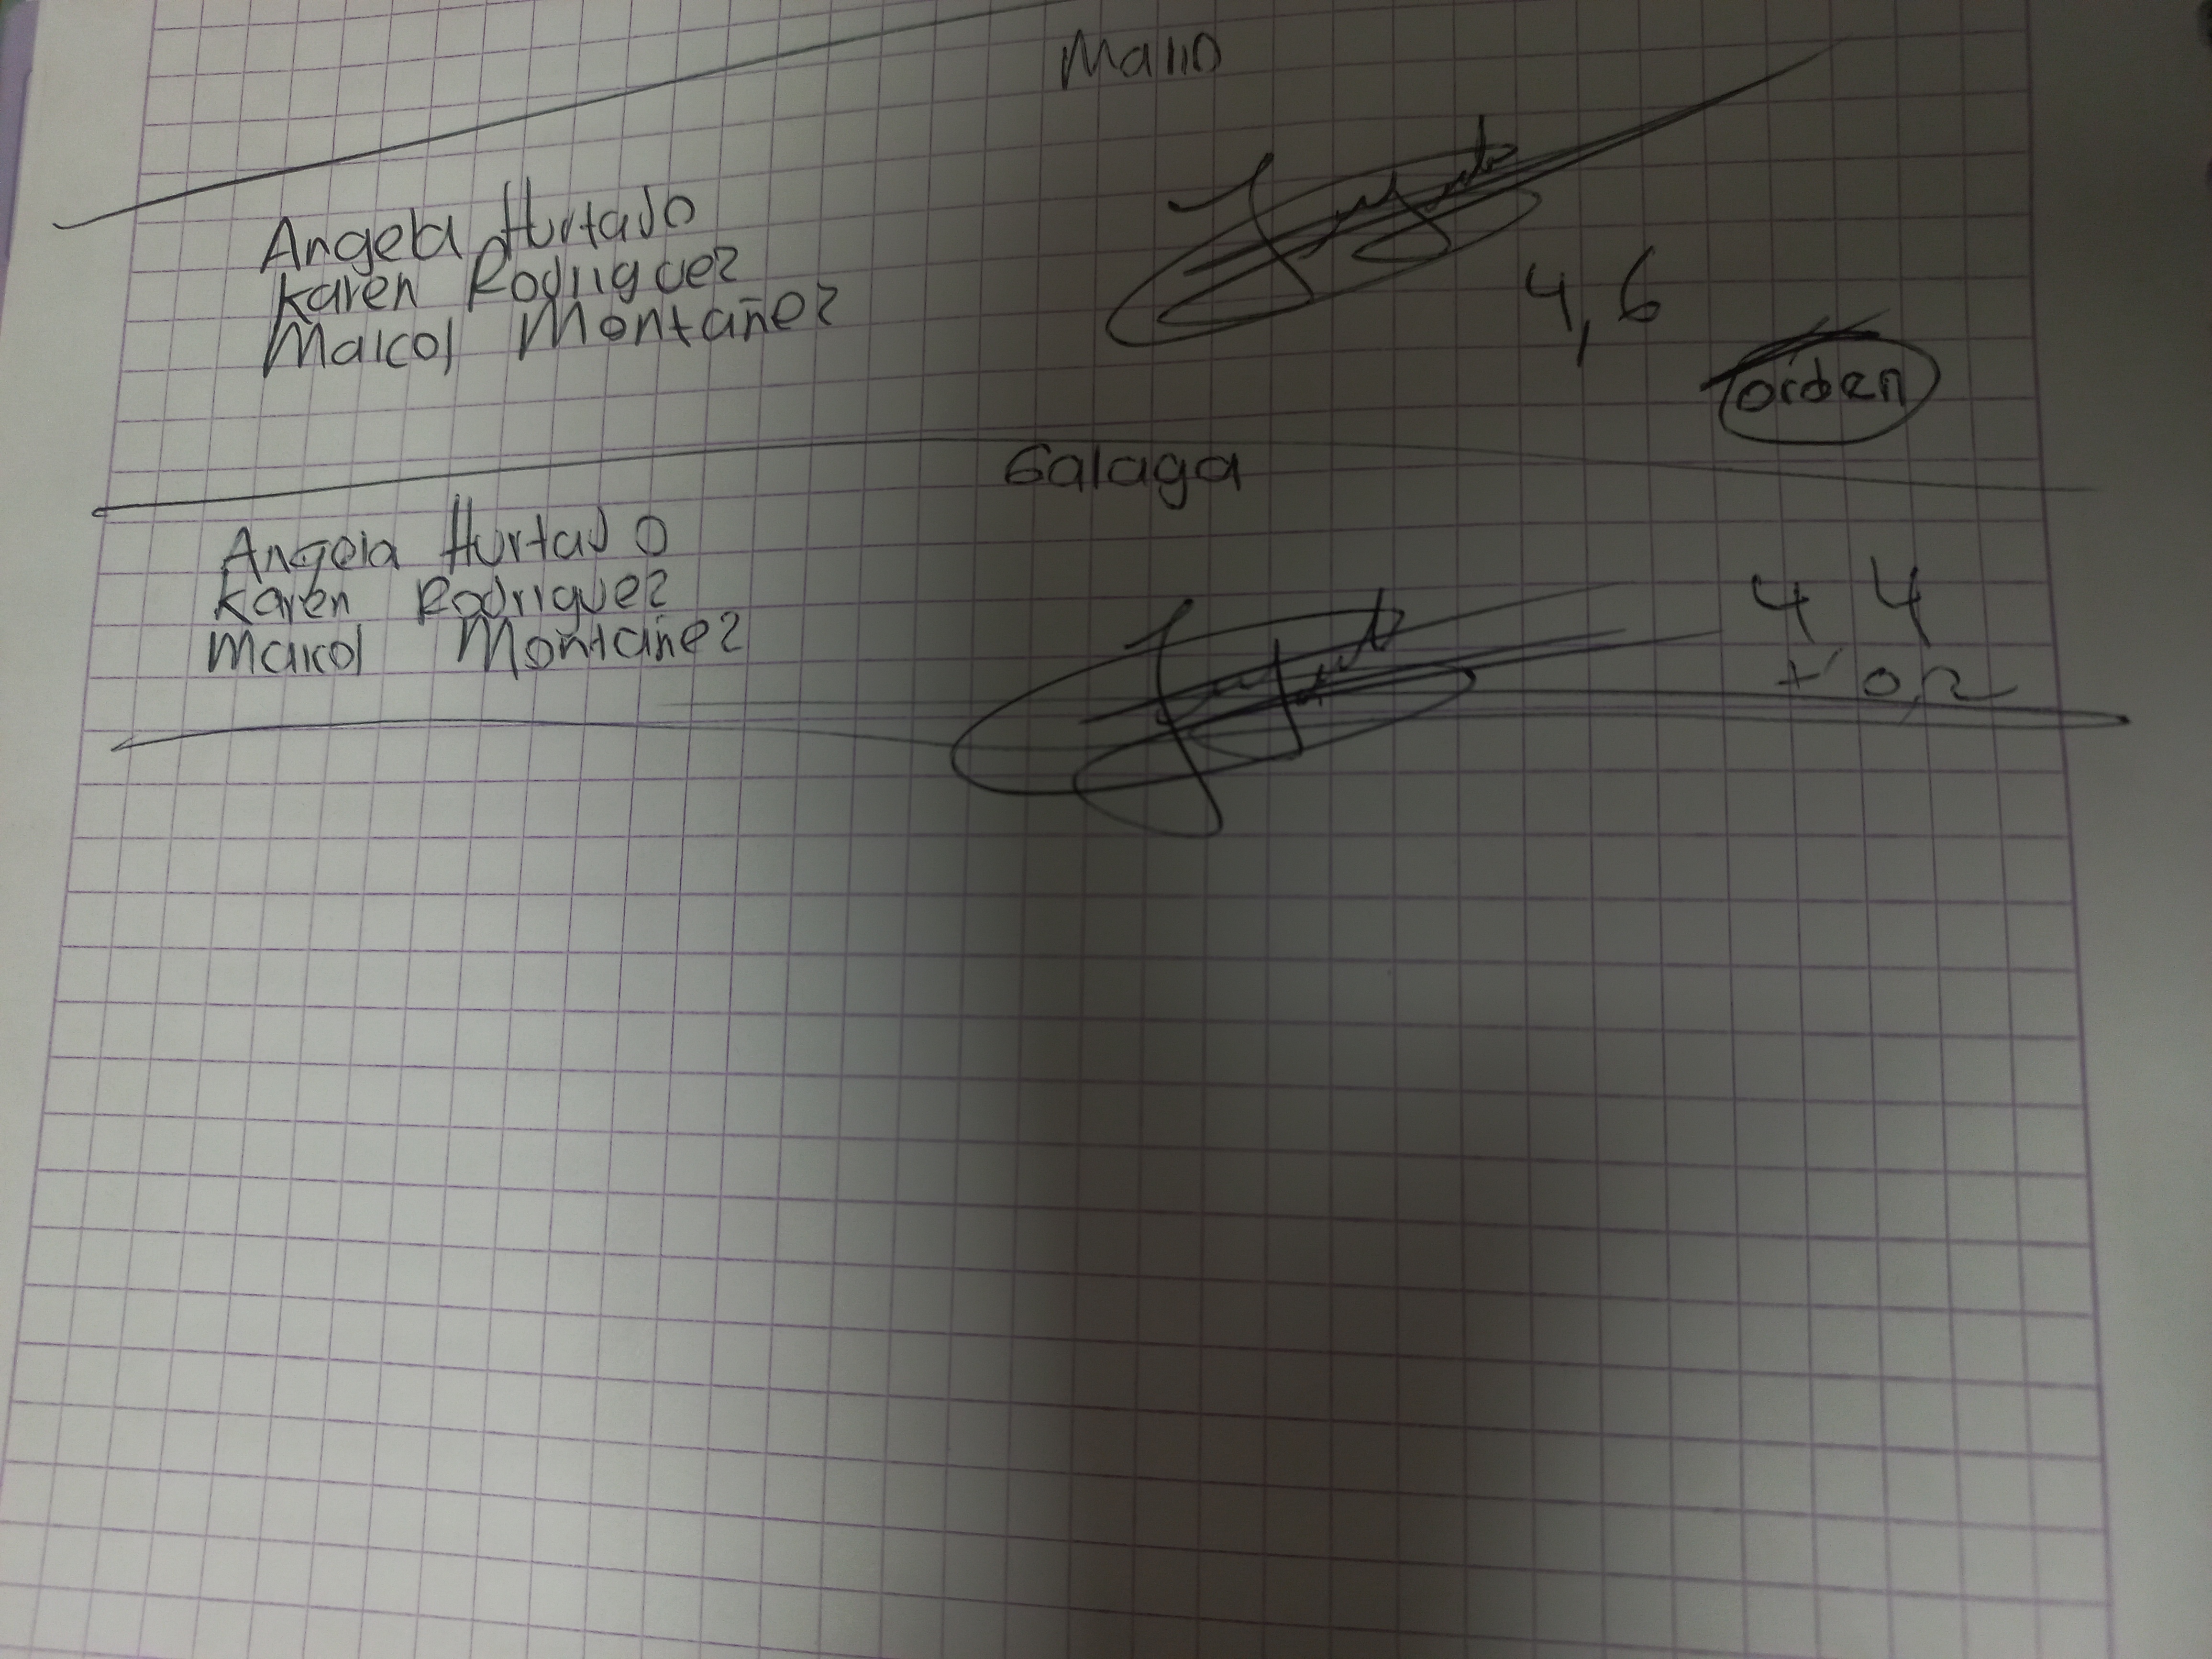 Mario
Angela Hurtado
Karen Rodriguez
Maicol Montañez
4,6
orden
Galaga
Angela Hurtado
Karen Rodriguez
Maicol Montañez
4 4
+ 0,2